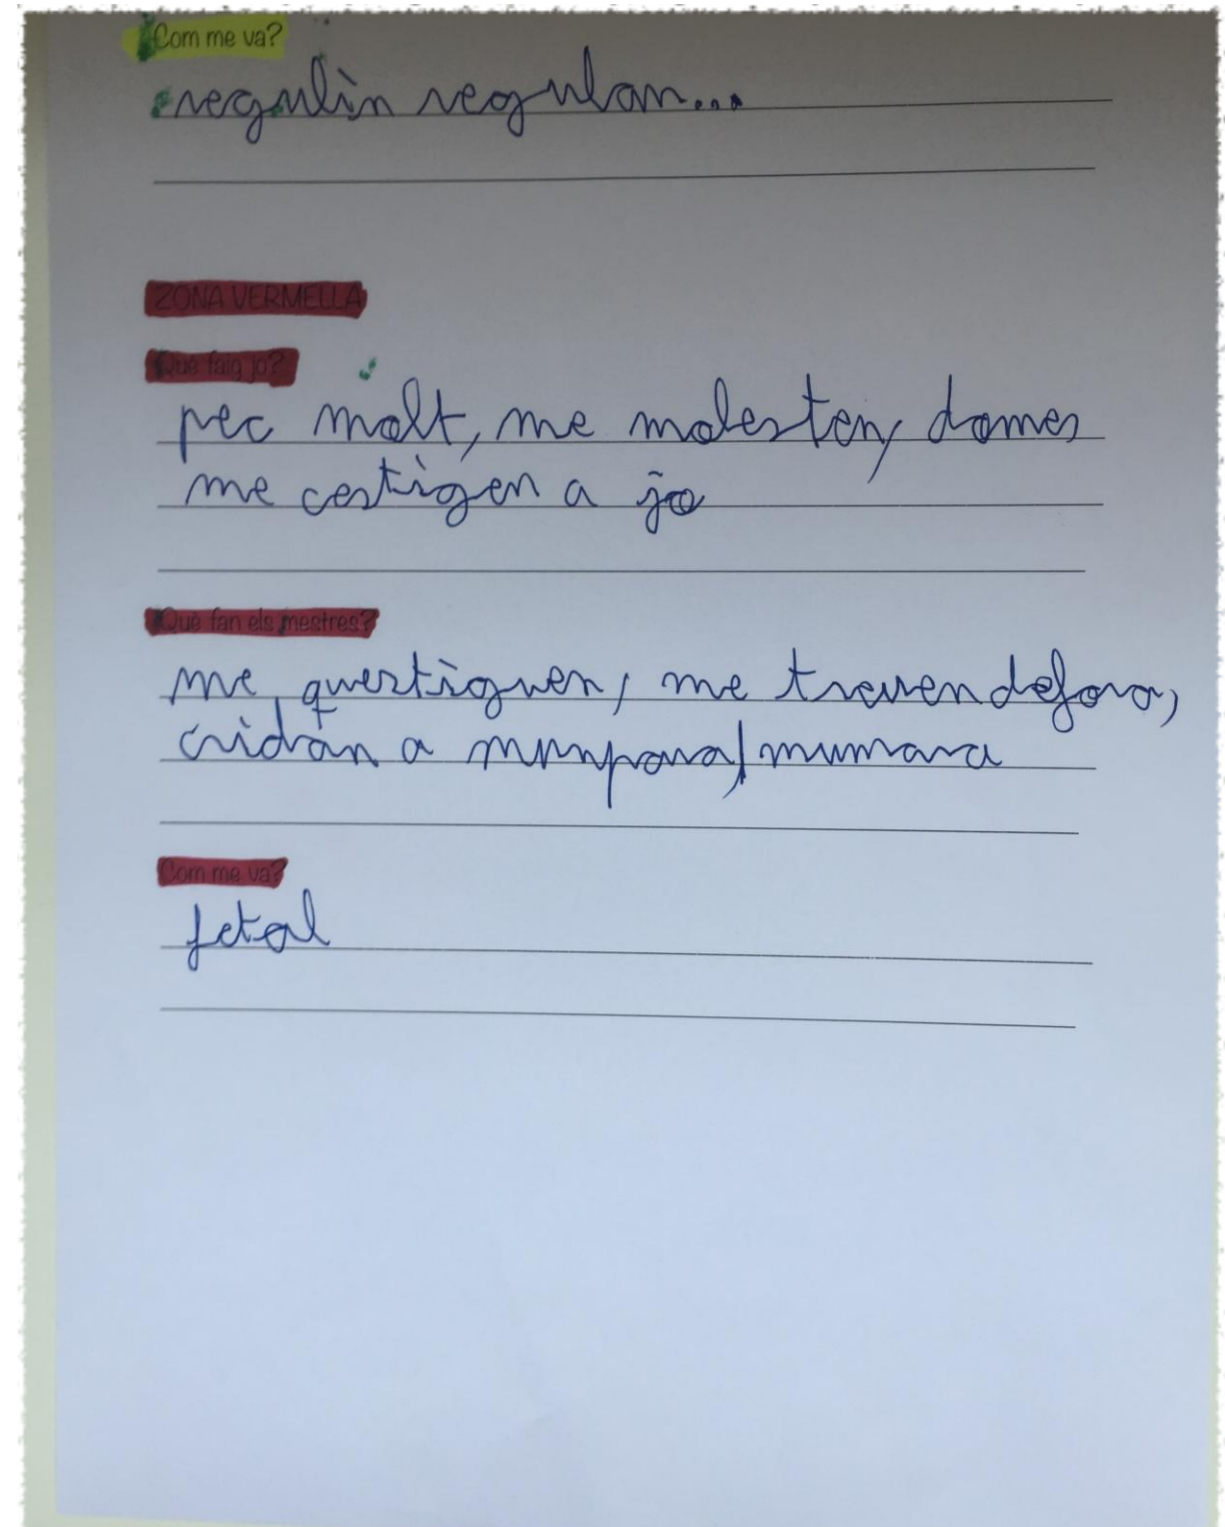 Com me va?
regulin regulan...
ZONA VERMELLA
Què faig jo?
pec molt, me molesten, domes
me castigen a jo
Què fan els mestres?
me, questiguen, me treuen defora,
cridan a munpara/mumara
Com me va?
fatal